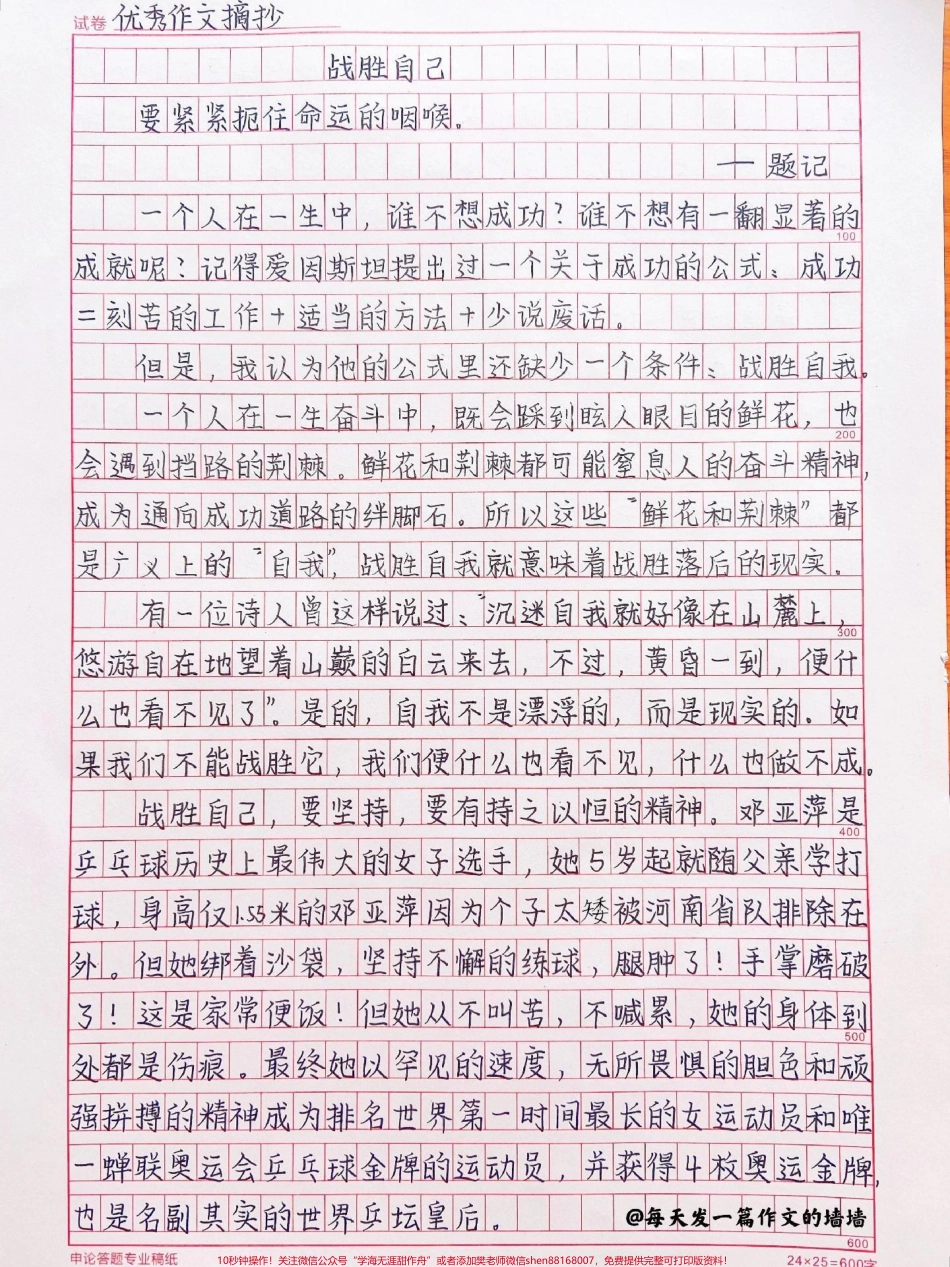 试卷 优秀作文摘抄
战胜自己
要紧紧扼住命运的咽喉。
——题记
一个人在一生中，谁不想成功？谁不想有一翻显著的
100
成就呢？记得爱因斯坦提出过一个关于成功的公式：成功
=刻苦的工作+适当的方法+少说废话。
但是，我认为他的公式里还缺少一个条件：战胜自我。
一个人在一生奋斗中，既会踩到眩人眼目的鲜花，也
200
会遇到挡路的荆棘。鲜花和荆棘都可能窒息人的奋斗精神，
成为通向成功道路的绊脚石。所以这些“鲜花和荆棘”都
是广义上的“自我”，战胜自我就意味着战胜落后的现实。
有一位诗人曾这样说过：“沉迷自我就好像在山麓上，
300
悠游自在地望着山巅的白云来去，不过，黄昏一到，便什
么也看不见了”。是的，自我不是漂浮的，而是现实的。如
果我们不能战胜它，我们便什么也看不见，什么也做不成。
战胜自己，要坚持，要有持之以恒的精神。邓亚萍是
400
乒乓球历史上最伟大的女子选手，她5岁起就随父亲学打
球，身高仅1.55米的邓亚萍因为个子太矮被河南省队排除在
外。但她绑着沙袋，坚持不懈的练球，腿肿了！手掌磨破
了！这是家常便饭！但她从不叫苦，不喊累，她的身体到
500
处都是伤痕。最终她以罕见的速度，无所畏惧的胆色和顽
强拼搏的精神成为排名世界第一时间最长的女运动员和唯
一蝉联奥运会乒乓球金牌的运动员，并获得4枚奥运金牌，
也是名副其实的世界乒坛皇后。
@每天发一篇作文的墙墙
600
申论答题专业稿纸
10秒钟操作！关注微信公众号“学海无涯甜作舟”或者添加樊老师微信shen88168007，免费提供完整可打印版资料！
24×25=600字